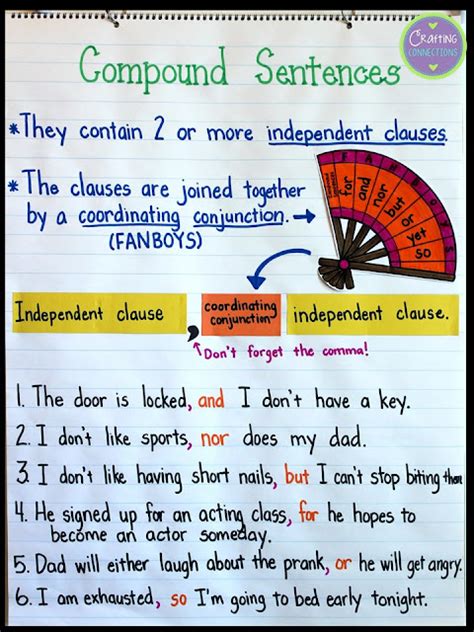 CRAFTING
CONNECTIONS
Compound Sentences
*They contain 2 or more independent clauses.
*The clauses are joined together
by a coordinating conjunction. →
(FANBOYS)
Compound
Sentences
F A N B O Y S
for and nor but or yet so
Independent clause , coordinating conjunction independent clause.
↑Don't forget the comma!
1. The door is locked, and I don't have a key.
2. I don't like sports, nor does my dad.
3. I don't like having short nails, but I can't stop biting them
4. He signed up for an acting class, for he hopes to
become an actor someday.
5. Dad will either laugh about the prank, or he will get angry.
6. I am exhausted, so I'm going to bed early tonight.